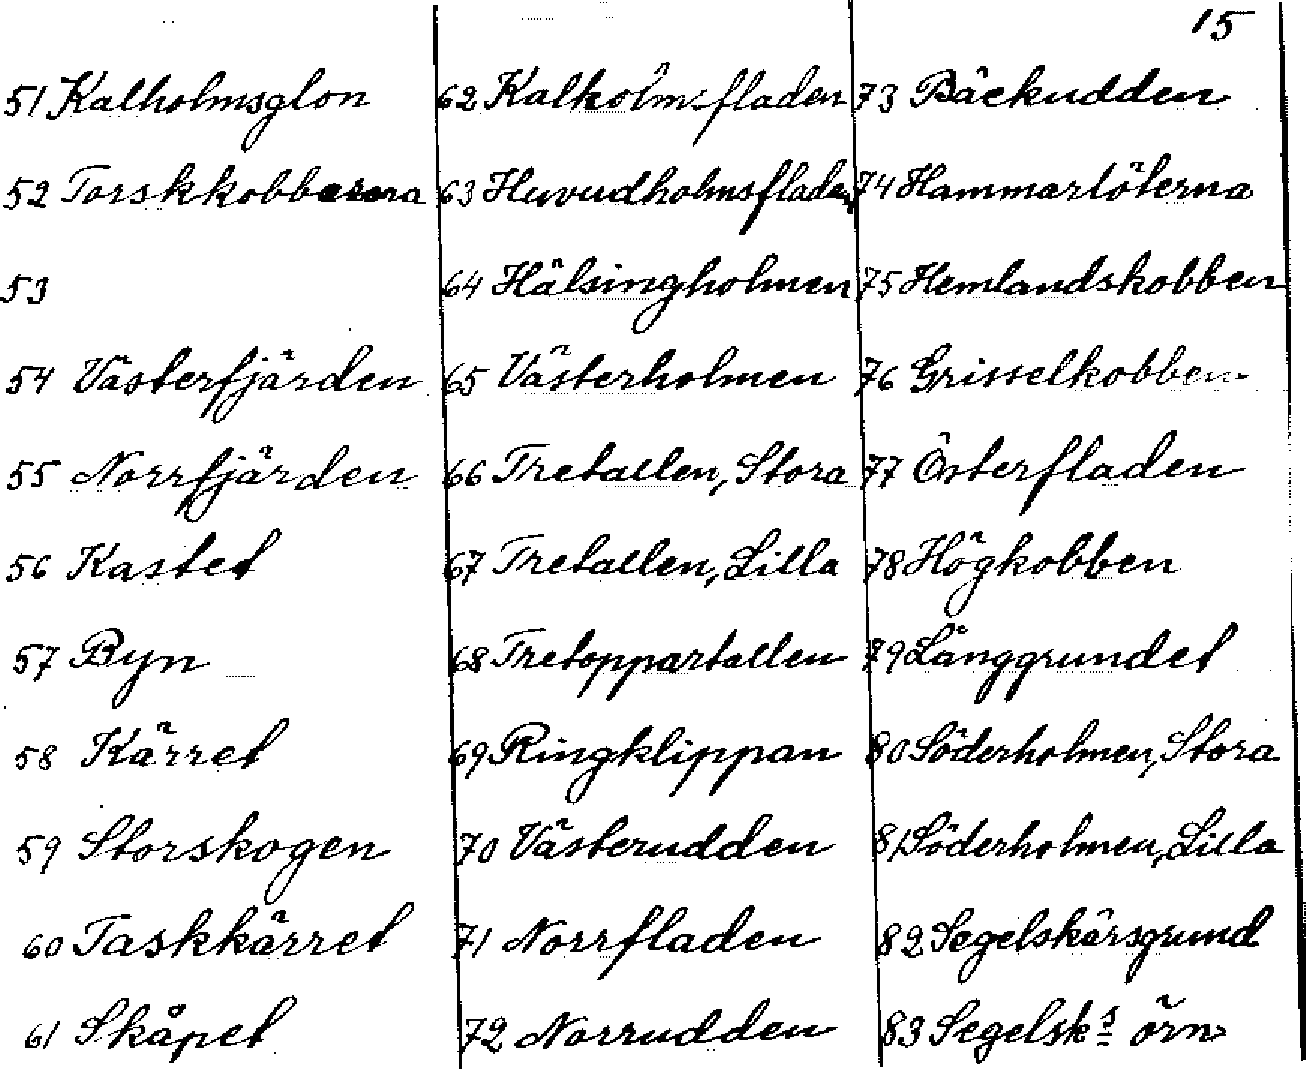 15
51 Kalholmsglon
52 Torskkobbarna
53
54 Västerfjärden
55 Norrfjärden
56 Kastet
57 Byn
58 Kärret
59 Storskogen
60 Taskkärret
61 Skåpet
62 Kalholmsfladen
63 Huvudholmsfladen
64 Hälsingholmen
65 Västerholmen
66 Tretallen, Stora
67 Tretallen, Lilla
68 Tretoppartallen
69 Ringklippan
70 Västerudden
71 Norrfladen
72 Norrudden
73 Bäckudden
74 Hammarlöterna
75 Hemlandskobben
76 Grisselkobben
77 Österfladen
78 Högkobben
79 Långgrundet
80 Söderholmen, Stora
81 Söderholmen, Lilla
82 Segelskärsgrund
83 Segelsk:s örn